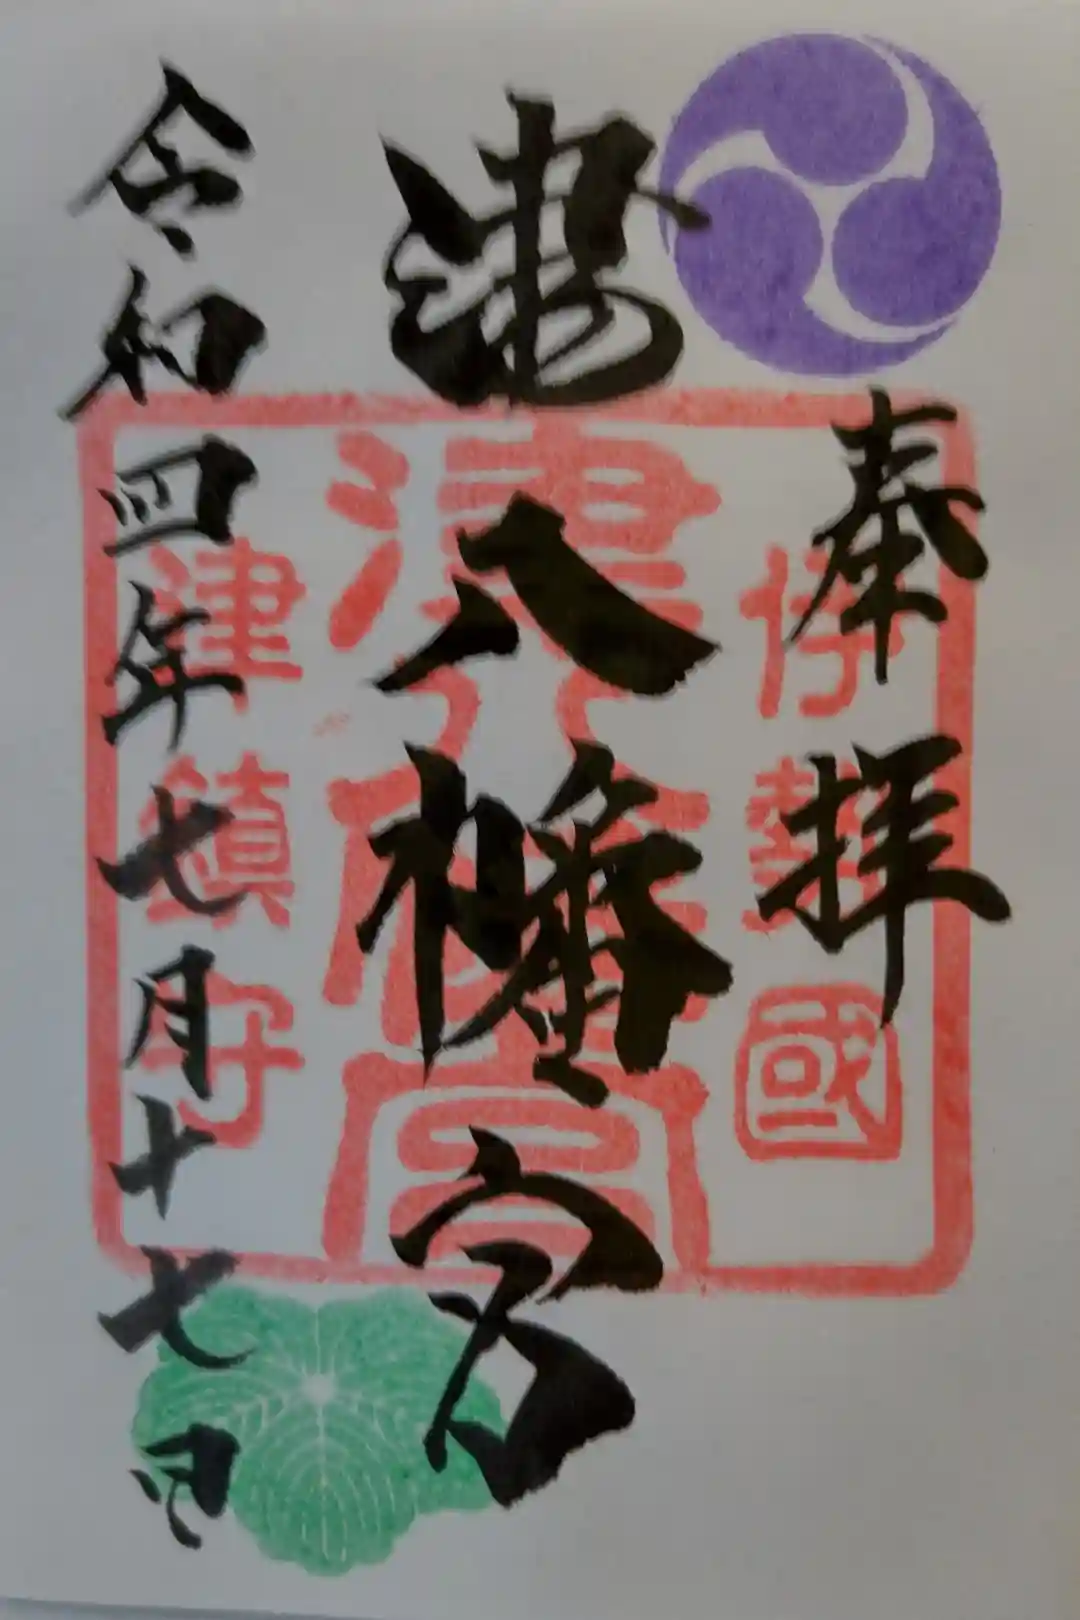 奉拝
津八幡宮
令和四年七月十七日
伊勢國
津八幡宮
津鎮守